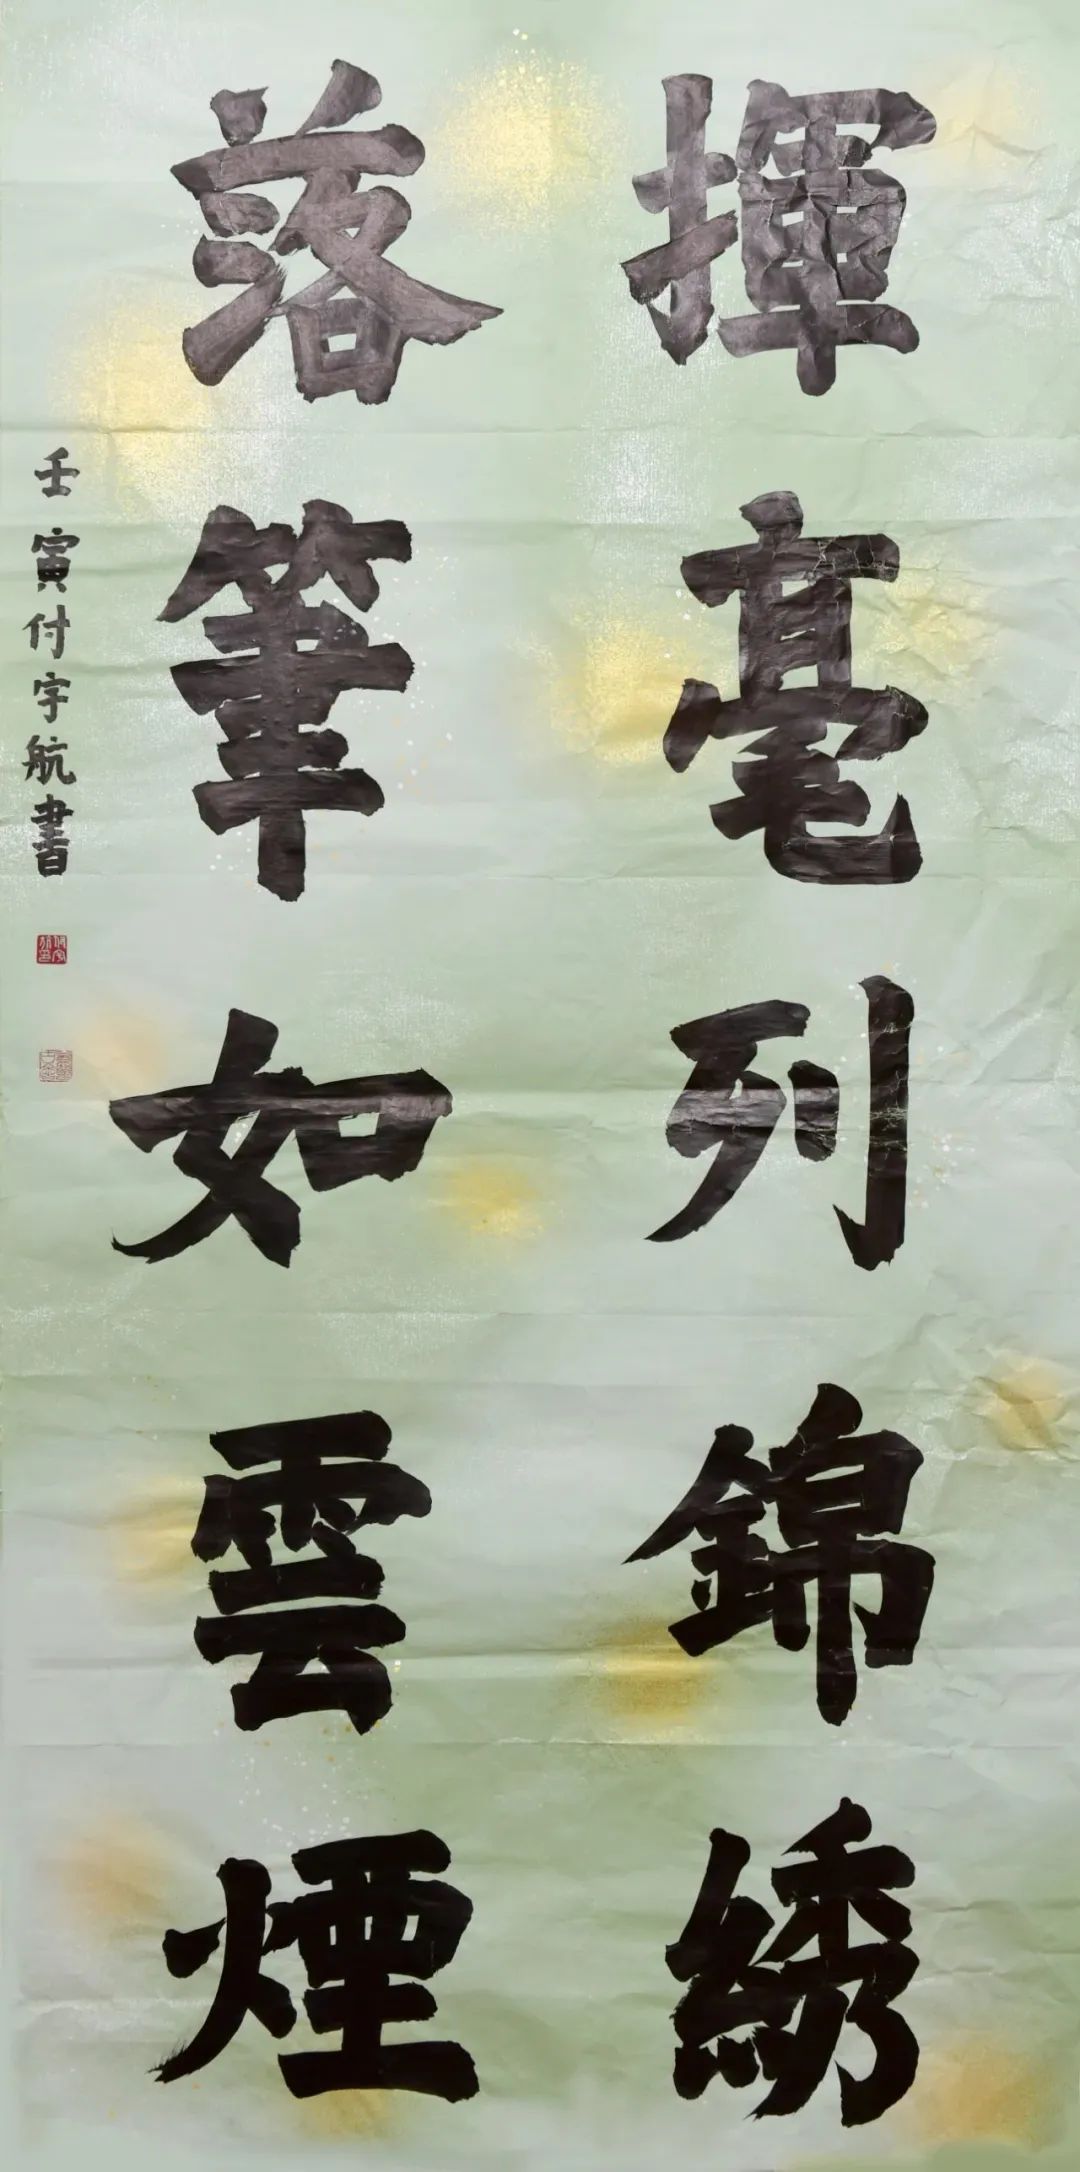 揮毫列錦綉
落筆如雲煙
壬寅付宇航書